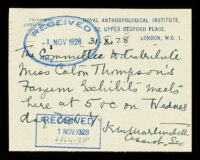 ROYAL ANTHROPOLOGICAL INSTITUTE,
52, UPPER BEDFORD PLACE,
LONDON, W.C. 1.
RECEIVED
1 NOV 1928
31.X.28
The Committee to distribute
Miss Caton Thompson's
Fayum Exhibits meets
here at 5 oc on Wednes
day
RECEIVED
1 NOV 1928
Assist. Sec